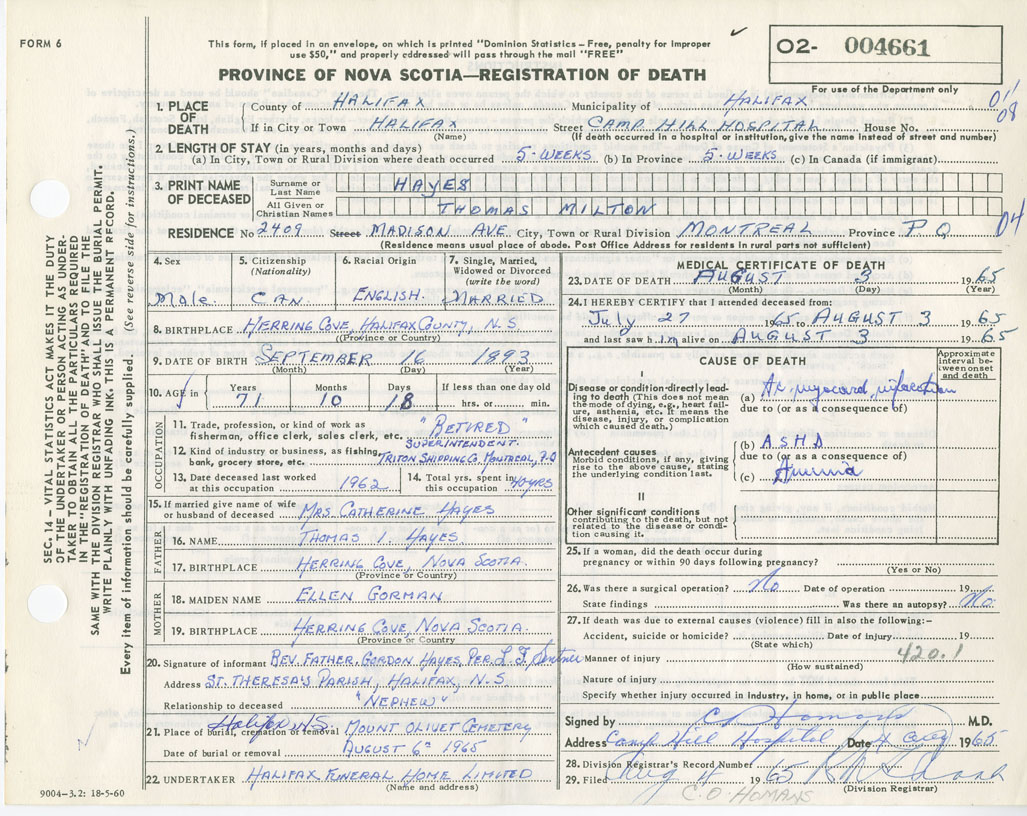 FORM 6
This form, if placed in an envelope, on which is printed "Dominion Statistics – Free, penalty for improper
use $50," and properly addressed will pass through the mail "FREE"
PROVINCE OF NOVA SCOTIA—REGISTRATION OF DEATH
O2- 004661
For use of the Department only
SEC. 14 – VITAL STATISTICS ACT MAKES IT THE DUTY
OF THE UNDERTAKER OR PERSON ACTING AS UNDER-
TAKER TO OBTAIN ALL THE PARTICULARS REQUIRED
IN THE "REGISTRATION OF DEATH" AND TO FILE THE
SAME WITH THE DIVISION REGISTRAR WHO SHALL ISSUE THE BURIAL PERMIT.
WRITE PLAINLY WITH UNFADING INK. THIS IS A PERMANENT RECORD.
Every item of information should be carefully supplied. (See reverse side for instructions.)
1. PLACE OF DEATH
County of HALIFAX Municipality of HALIFAX 01/08
If in City or Town HALIFAX Street CAMP HILL HOSPITAL House No.
(Name) (If death occurred in a hospital or institution, give the name instead of street and number)
2. LENGTH OF STAY (in years, months and days)
(a) In City, Town or Rural Division where death occurred 5-WEEKS (b) In Province 5-WEEKS (c) In Canada (if immigrant)
3. PRINT NAME OF DECEASED
Surname or Last Name HAYES
All Given or Christian Names THOMAS MILTON
RESIDENCE No 2409 Street MADISON AVE. City, Town or Rural Division MONTREAL Province P.Q. 04
(Residence means usual place of abode. Post Office Address for residents in rural parts not sufficient)
4. Sex
Male.
5. Citizenship
(Nationality)
CAN.
6. Racial Origin
ENGLISH.
7. Single, Married,
Widowed or Divorced
(write the word)
MARRIED
8. BIRTHPLACE HERRING COVE, HALIFAX COUNTY, N.S
(Province or Country)
9. DATE OF BIRTH SEPTEMBER 16 1893
(Month) (Day) (Year)
10. AGE in Years Months Days If less than one day old
71 10 18 hrs. or min.
OCCUPATION
11. Trade, profession, or kind of work as
fisherman, office clerk, sales clerk, etc. "RETIRED"
SUPERINTENDENT.
12. Kind of industry or business, as fishing,
bank, grocery store, etc. TRITON SHIPPING Co. MONTREAL, P.Q
13. Date deceased last worked
at this occupation 1962
14. Total yrs. spent in
this occupation 40 yrs
15. If married give name of wife
or husband of deceased MRS CATHERINE HAYES
FATHER
16. NAME THOMAS I. HAYES
17. BIRTHPLACE HERRING COVE, NOVA SCOTIA.
(Province or Country)
MOTHER
18. MAIDEN NAME ELLEN GORMAN
19. BIRTHPLACE HERRING COVE, NOVA SCOTIA.
(Province or Country
20. Signature of informant REV. FATHER. GORDON HAYES, PER.
Address ST. THERESA'S PARISH, HALIFAX, N.S
Relationship to deceased "NEPHEW"
Halifax N.S.
21. Place of burial, cremation or removal MOUNT OLIVET CEMETERY
Date of burial or removal AUGUST 6th 1965
22. UNDERTAKER HALIFAX FUNERAL HOME LIMITED
(Name and address)
9004–3.2: 18-5-60
MEDICAL CERTIFICATE OF DEATH
23. DATE OF DEATH AUGUST 3 1965
(Month) (Day) (Year)
24. I HEREBY CERTIFY that I attended deceased from:
July 27 1965 to AUGUST 3 1965
and last saw him alive on AUGUST 3 1965
CAUSE OF DEATH
Approximate
interval be-
tween onset
and death
I
Disease or condition directly lead-
ing to death (This does not mean
the mode of dying, e.g., heart fail-
ure, asthenia, etc. It means the
disease, injury, or complication
which caused death.)
(a) Ac. myocard. infarction
due to (or as a consequence of)
Antecedent causes
Morbid conditions, if any, giving
rise to the above cause, stating
the underlying condition last.
(b) ASHD
due to (or as a consequence of)
(c) Anemia
II
Other significant conditions
contributing to the death, but not
related to the disease or condi-
tion causing it.
25. If a woman, did the death occur during
pregnancy or within 90 days following pregnancy?
(Yes or No)
26. Was there a surgical operation? No Date of operation 19
State findings Was there an autopsy? No.
27. If death was due to external causes (violence) fill in also the following:–
Accident, suicide or homicide? Date of injury 19
(State which)
420.1
Manner of injury
(How sustained)
Nature of injury
Specify whether injury occurred in industry, in home, or in public place
Signed by C O Homans M.D.
Address Camp Hill Hospital Date 4 Aug 1965
28. Division Registrar's Record Number
29. Filed Aug 4 1965
(Division Registrar)
C.O. HOMANS